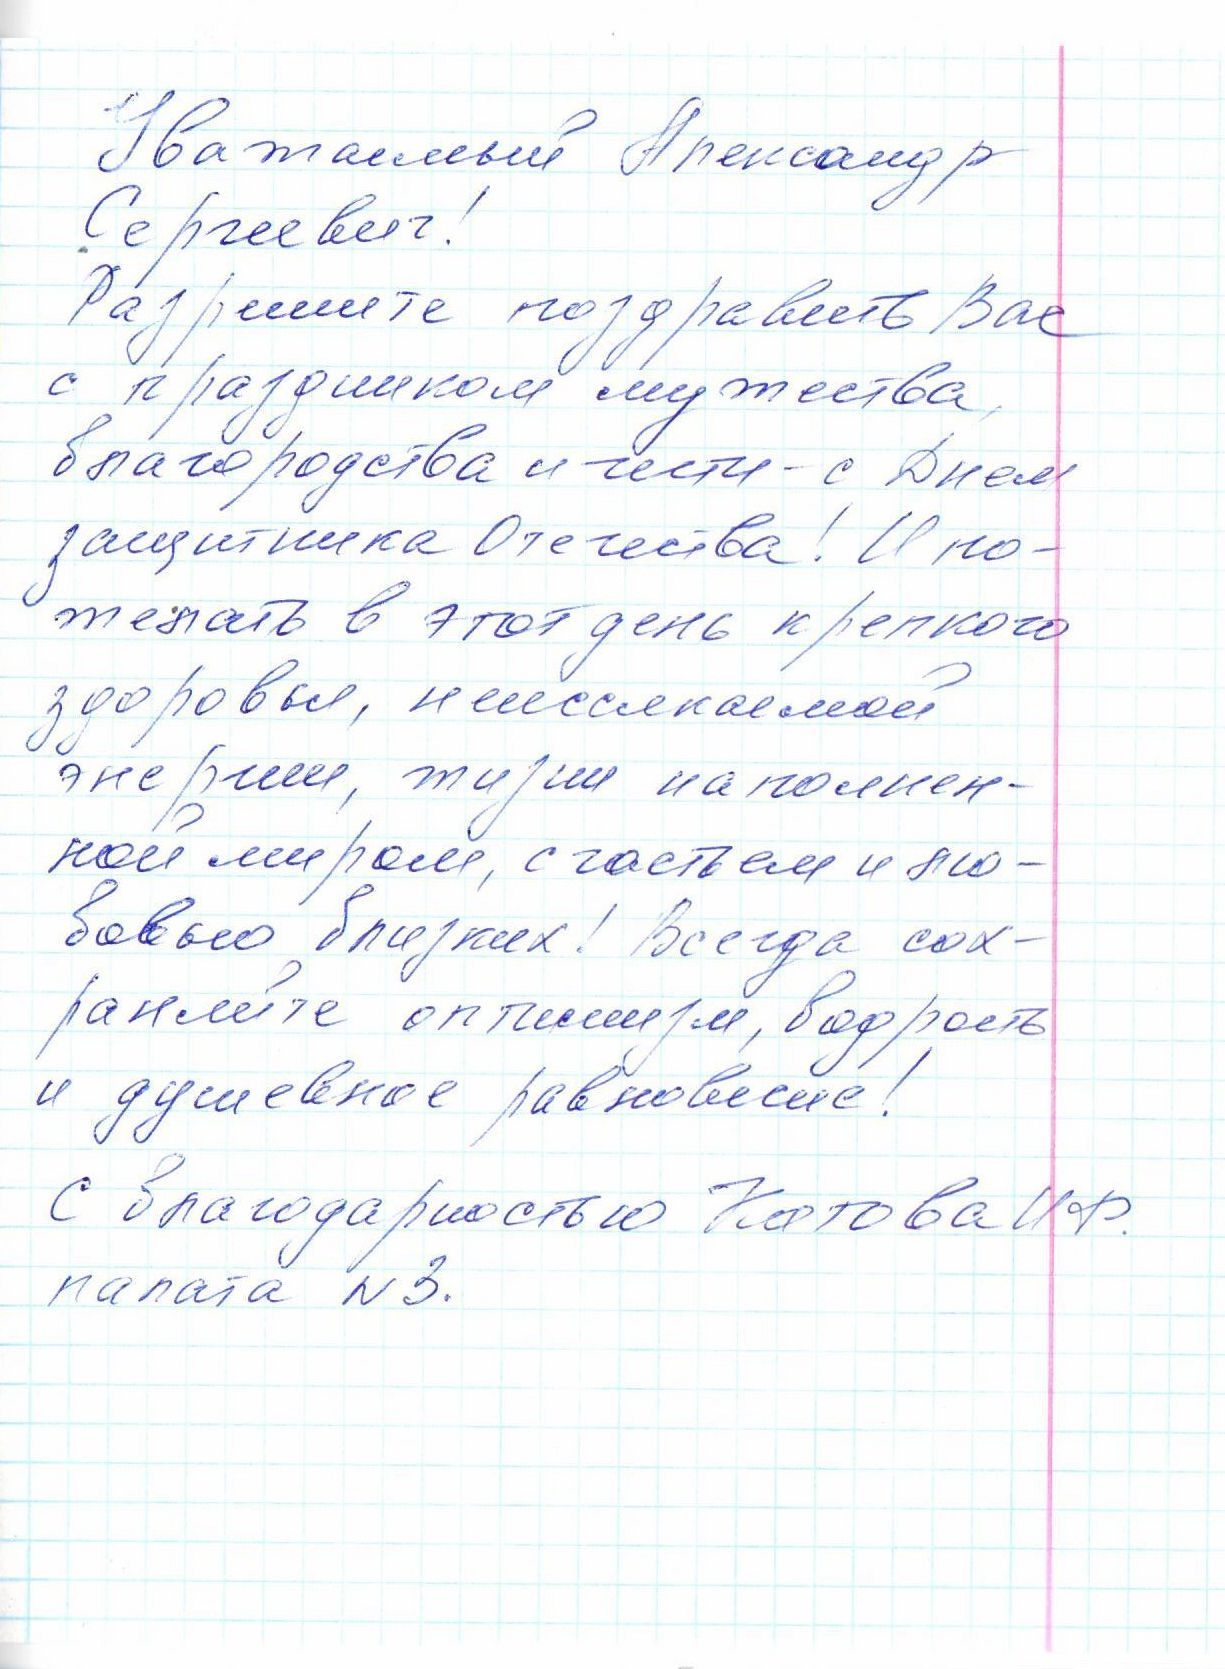 Уважаемый Александр
Сергеевич!
Разрешите поздравить Вас
с праздником мужества,
благородства и чести - с Днем
защитника Отечества! И по-
желать в этот день крепкого
здоровья, неиссякаемой
энергии, жизни наполнен-
ной миром, счастьем и лю-
бовью близких! Всегда сох-
раняйте оптимизм, бодрость
и душевное равновесие!
С благодарностью Котова И.Ф.
палата N 3.